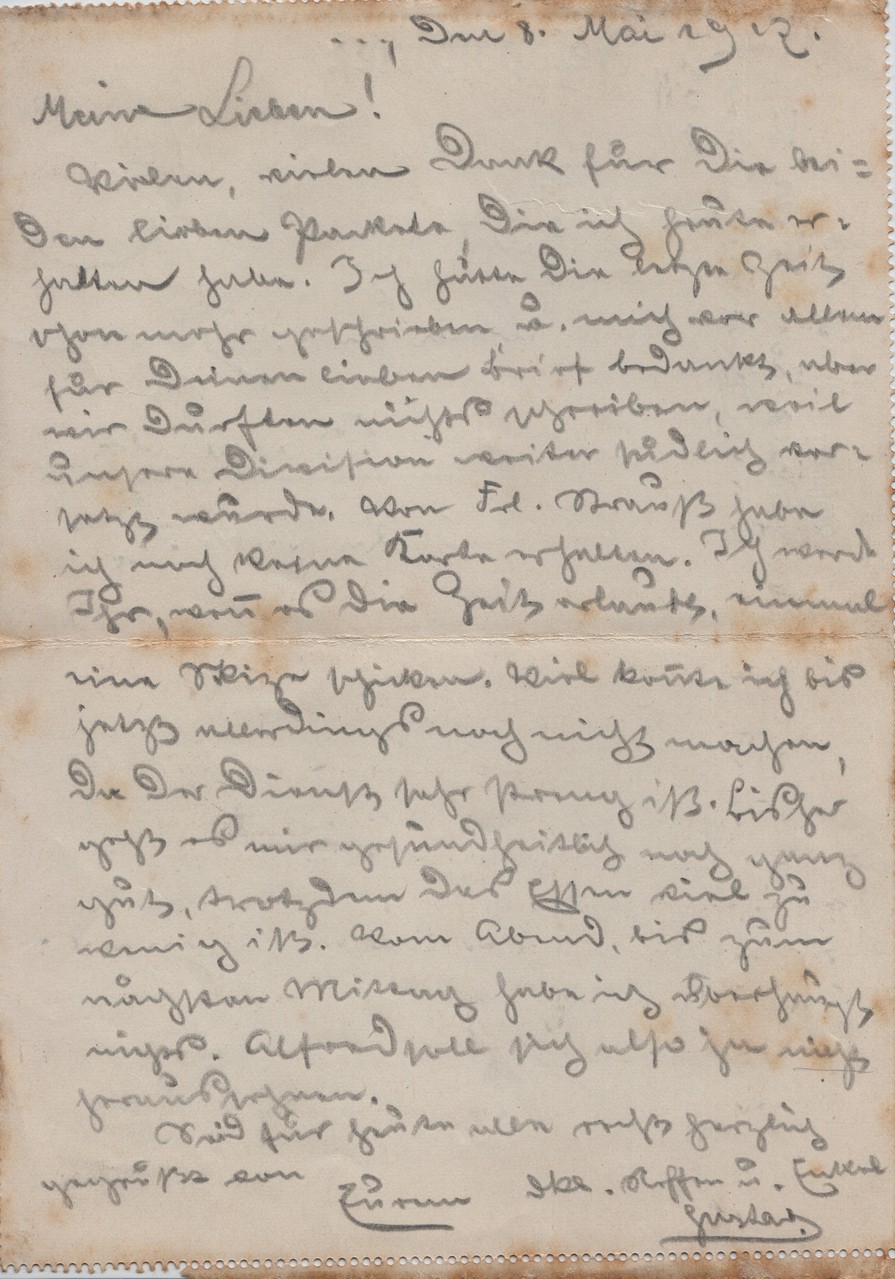 ..., den 8. Mai 1917.
Meine Lieben!
Vielen, vielen Dank für die bei=
den lieben Packete, die ich heute er-
halten habe. Ich hätte die letzte Zeit
schon mehr geschrieben u. mich vor allem
für Deinen lieben Brief bedankt, aber
wir durften nichts schreiben, weil
unsere Division weiter südlich ver-
setzt wurde. Von Frl. Strauß habe
ich noch keine Karte erhalten. Ich werde
Ihr, wen̄ es die Zeit erlaubt, einmal
eine Skize schicken. Viel kon̄te ich bis
jetzt allerdings noch nicht machen,
da der Dienst sehr streng ist. Bisher
geht es mir gesundheitlich noch ganz
gut, trotzdem das Essen viel zu
wenig ist. Vom Abend, bis zum
nächsten Mittag habe ich überhaupt
nichts. Alfred soll sich also ja nicht
heraussehnen.
Seid für heute alle recht herzlich
gegrüßt von Eurem dkb. Neffen u. Enkel
Gustav.